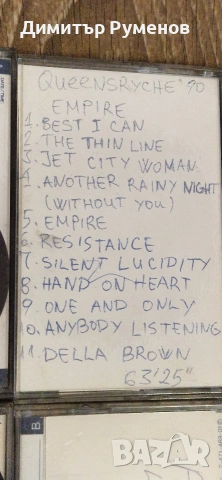 Димитър Руменов
QUEENSRYCHE '90
EMPIRE
1. BEST I CAN
2. THE THIN LINE
3. JET CITY WOMAN
4. ANOTHER RAINY NIGHT
(WITHOUT YOU)
5. EMPIRE
6. RESISTANCE
7. SILENT LUCIDITY
8. HAND ON HEART
9. ONE AND ONLY
10. ANYBODY LISTENING
11. DELLA BROWN
63'25"
B
B
BAZAR